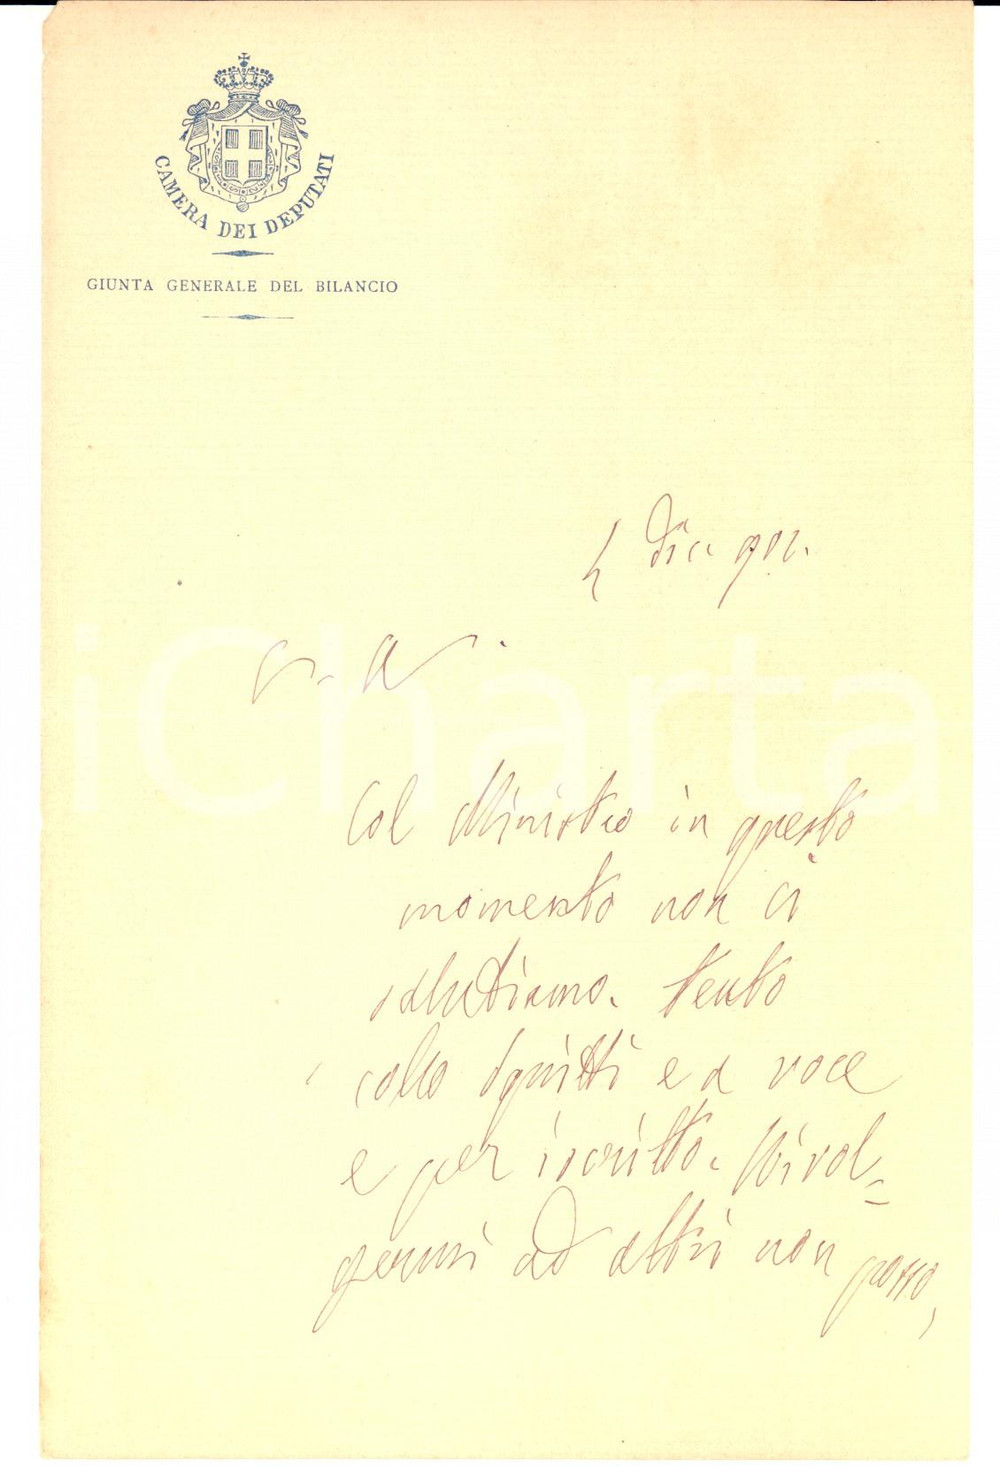 CAMERA DEI DEPUTATI
GIUNTA GENERALE DEL BILANCIO
4 Dic. 902.
C. A.
Col Ministro in questo
momento non ci
salutiamo. Tento
collo Squitti e a voce
e per iscritto. Rivol=
germi ad altri non posso,
iCharta